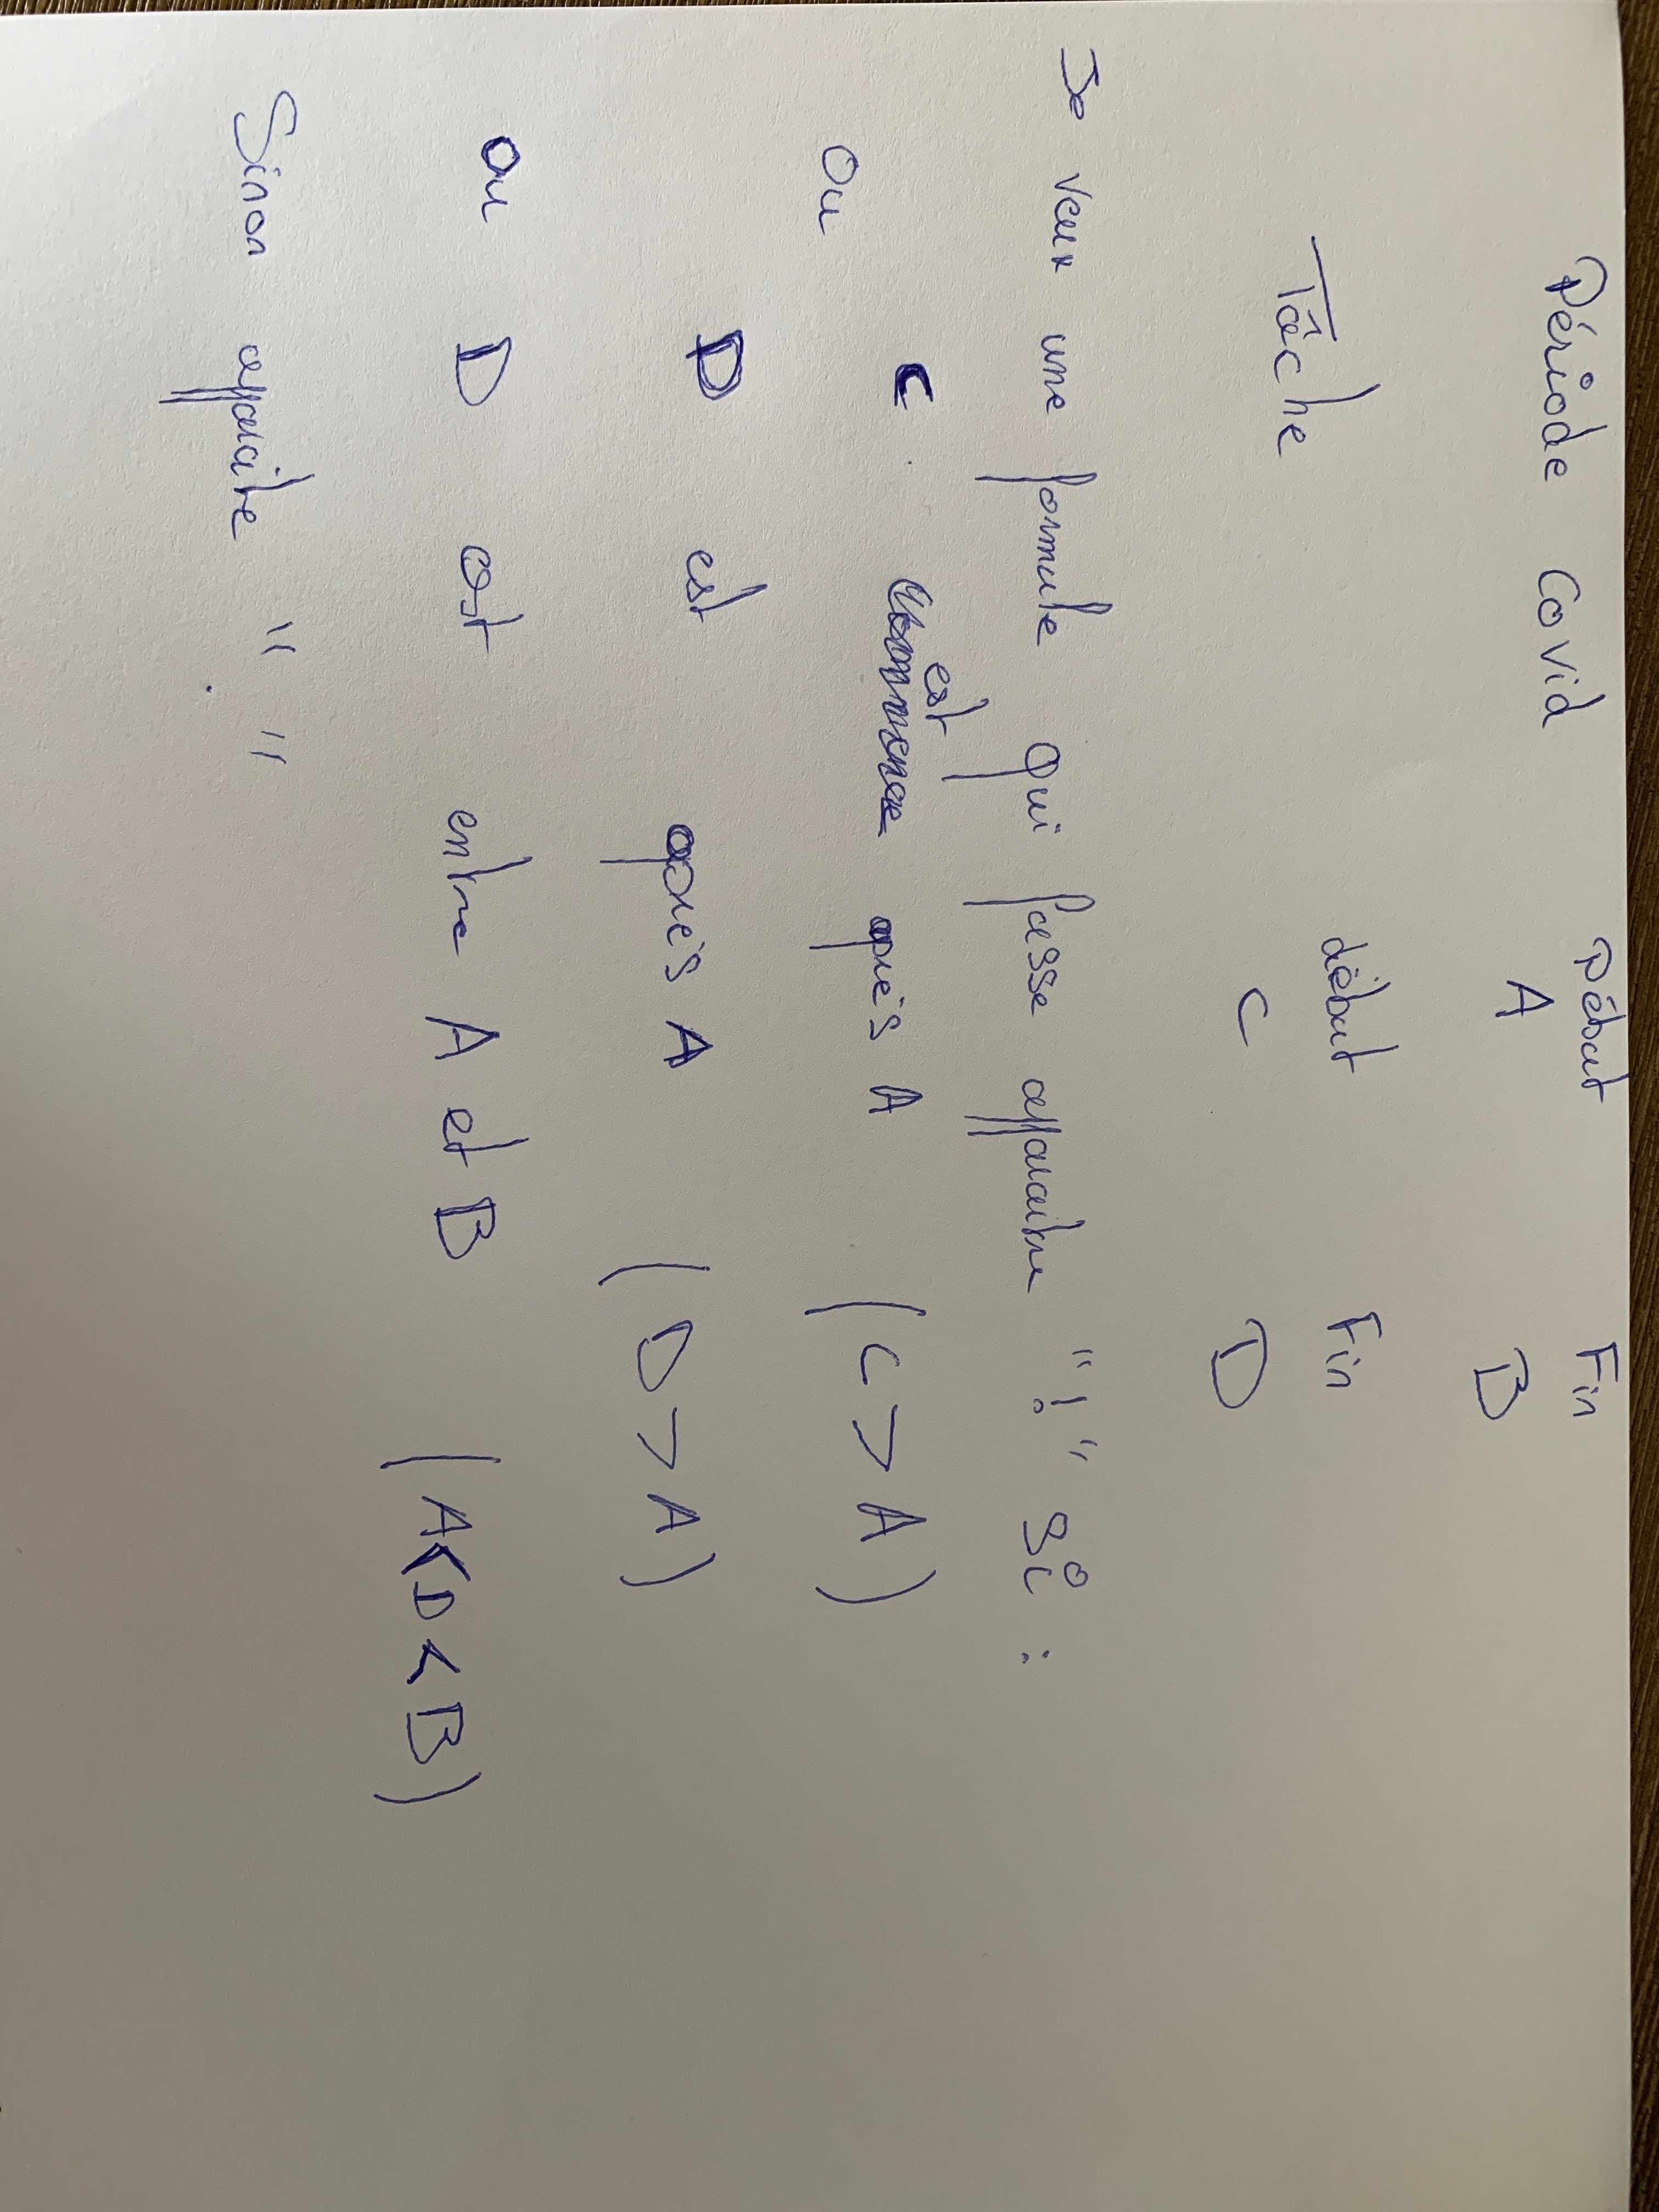 Début Fin
Période Covid A B
début Fin
Tâche C D
Je veux une formule qui fasse apparaitre "!" Si :
C est après A (C > A)
Ou
D est après A (D > A)
ou D est entre A et B (A<D<B)
Sinon apparaitre " "